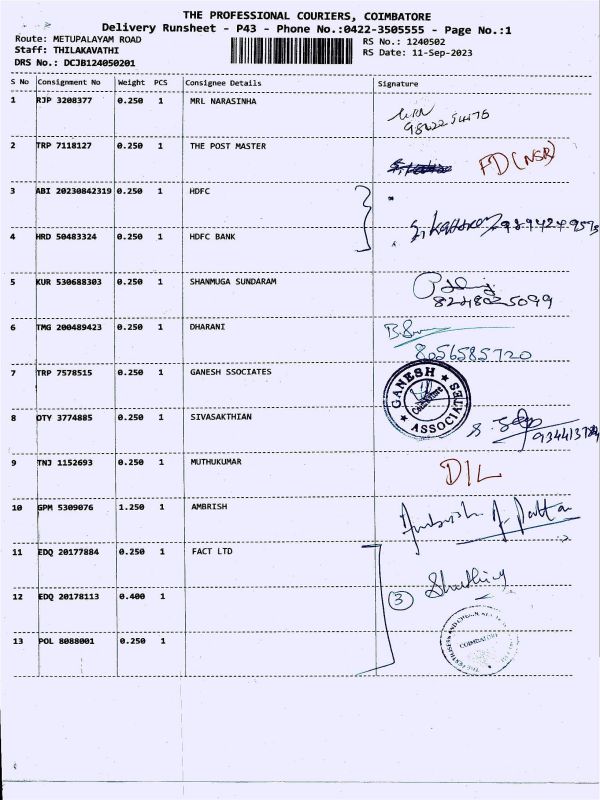 THE PROFESSIONAL COURIERS, COIMBATORE
Delivery Runsheet - P43 - Phone No.:0422-3505555 - Page No.:1
Route: METUPALAYAM ROAD
RS No.: 1240502
Staff: THILAKAVATHI
RS Date: 11-Sep-2023
DRS No.: DCJB124050201
S No Consignment No Weight PCS Consignee Details Signature
1 RJP 3208377 0.250 1 MRL NARASINHA
2 TRP 7118127 0.250 1 THE POST MASTER
FD (NSR)
3 ABI 20230842319 0.250 1 HDFC
4 HRD 50483324 0.250 1 HDFC BANK
5 KUR 530688303 0.250 1 SHANMUGA SUNDARAM
8248025099
6 TMG 200489423 0.250 1 DHARANI
8056585720
7 TRP 7578515 0.250 1 GANESH SSOCIATES
GANESH ASSOCIATES
Coimbatore
8 OTY 3774885 0.250 1 SIVASAKTHIAN
9 TNJ 1152693 0.250 1 MUTHUKUMAR
D/L
10 GPM 5309076 1.250 1 AMBRISH
11 EDQ 20177884 0.250 1 FACT LTD
12 EDQ 20178113 0.400 1
3
13 POL 8088001 0.250 1
COIMBATORE